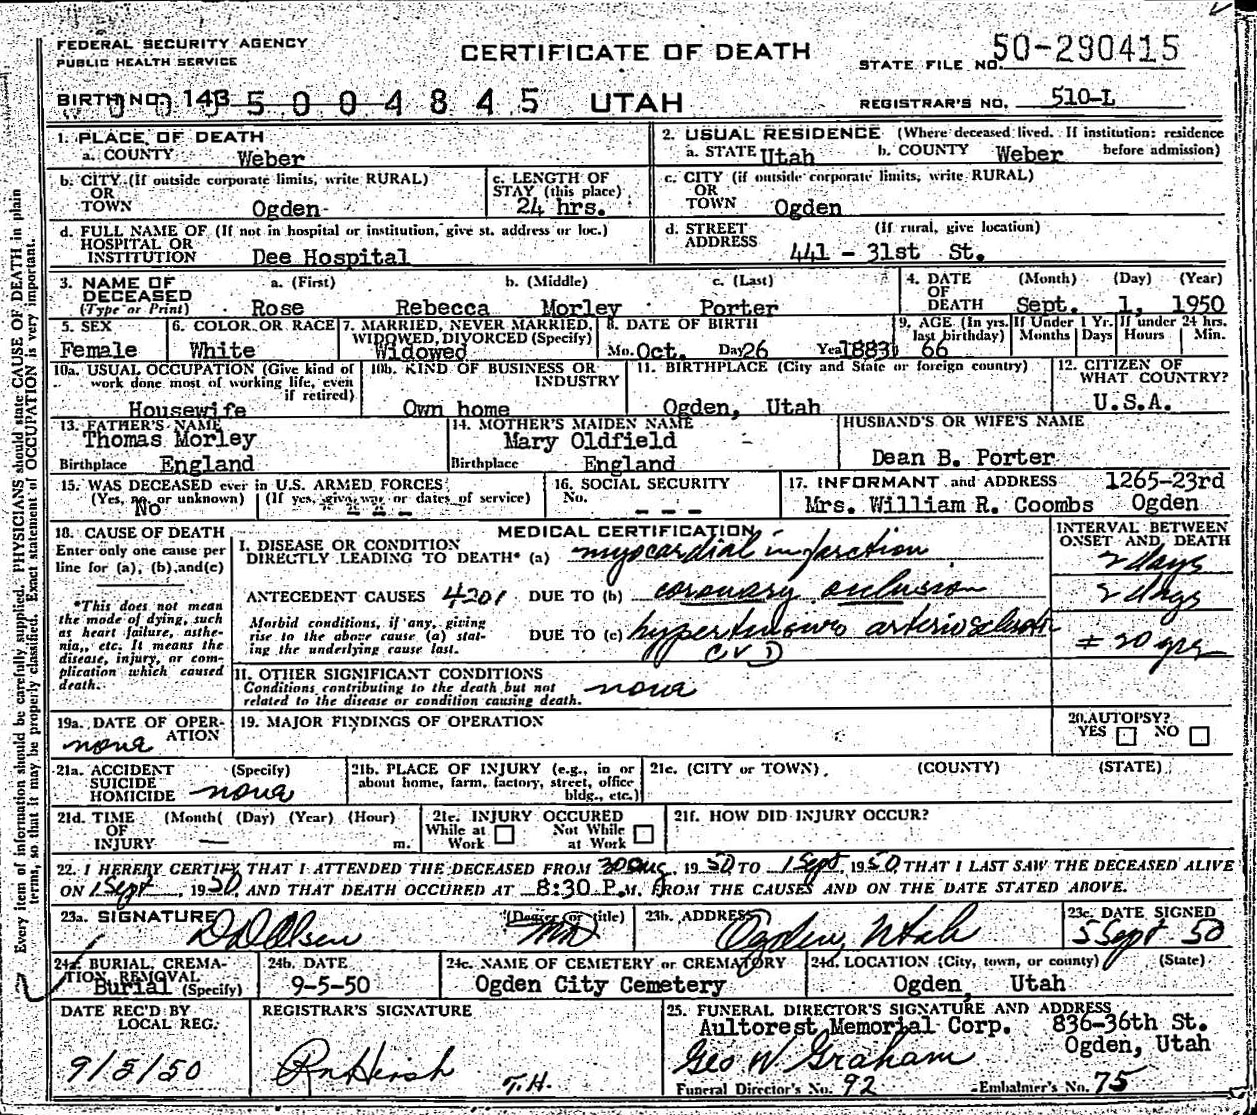 FEDERAL SECURITY AGENCY
PUBLIC HEALTH SERVICE
CERTIFICATE OF DEATH
STATE FILE NO. 50-290415
BIRTH NO. 143 5 0 0 4 8 4 5 UTAH
REGISTRAR'S NO. 510-L
1. PLACE OF DEATH
a. COUNTY Weber
2. USUAL RESIDENCE (Where deceased lived. If institution: residence before admission)
a. STATE Utah b. COUNTY Weber
b. CITY (If outside corporate limits, write RURAL) OR TOWN Ogden
c. LENGTH OF STAY (this place) 24 hrs.
c. CITY (if outside corporate limits, write RURAL) OR TOWN Ogden
d. FULL NAME OF (If not in hospital or institution, give st. address or loc.) HOSPITAL OR INSTITUTION Dee Hospital
d. STREET ADDRESS (If rural, give location) 441 - 31st St.
3. NAME OF DECEASED (Type or Print) a. (First) b. (Middle) c. (Last)
Rose Rebecca Morley Porter
4. DATE OF DEATH (Month) (Day) (Year) Sept. 1, 1950
5. SEX Female
6. COLOR OR RACE White
7. MARRIED, NEVER MARRIED, WIDOWED, DIVORCED (Specify) Widowed
8. DATE OF BIRTH Mo. Oct. Day 26 Year 1883
9. AGE (In yrs. last birthday) 66 If Under 1 Yr. Months Days If under 24 hrs. Hours Min.
10a. USUAL OCCUPATION (Give kind of work done most of working life, even if retired) Housewife
10b. KIND OF BUSINESS OR INDUSTRY Own home
11. BIRTHPLACE (City and State or foreign country) Ogden, Utah
12. CITIZEN OF WHAT COUNTRY? U.S.A.
13. FATHER'S NAME Thomas Morley
Birthplace England
14. MOTHER'S MAIDEN NAME Mary Oldfield
Birthplace England
HUSBAND'S OR WIFE'S NAME
Dean B. Porter
15. WAS DECEASED ever in U.S. ARMED FORCES? (Yes, no, or unknown) (If yes, give war or dates of service)
No - - -
16. SOCIAL SECURITY No. - - -
17. INFORMANT and ADDRESS 1265-23rd
Mrs. William R. Coombs Ogden
18. CAUSE OF DEATH
Enter only one cause per line for (a), (b), and (c)
*This does not mean the mode of dying, such as heart failure, asthenia, etc. It means the disease, injury, or complication which caused death.
MEDICAL CERTIFICATION
INTERVAL BETWEEN ONSET AND DEATH
I. DISEASE OR CONDITION DIRECTLY LEADING TO DEATH* (a) myocardial infarction 2 days
ANTECEDENT CAUSES 4201 DUE TO (b) coronary occlusion 2 days
Morbid conditions, if any, giving rise to the above cause (a) stating the underlying cause last.
DUE TO (c) hypertensive arteriosclerotic CVD ± 20 yrs
II. OTHER SIGNIFICANT CONDITIONS
Conditions contributing to the death but not related to the disease or condition causing death. none
19a. DATE OF OPERATION none
19. MAJOR FINDINGS OF OPERATION
20. AUTOPSY? YES NO
21a. ACCIDENT SUICIDE HOMICIDE (Specify) none
21b. PLACE OF INJURY (e.g., in or about home, farm, factory, street, office bldg., etc.)
21c. (CITY or TOWN) (COUNTY) (STATE)
21d. TIME OF INJURY (Month( (Day) (Year) (Hour) — m.
21e. INJURY OCCURED While at Work Not While at Work
21f. HOW DID INJURY OCCUR?
22. I HEREBY CERTIFY THAT I ATTENDED THE DECEASED FROM 30 Aug, 1950 TO 1 Sept, 1950 THAT I LAST SAW THE DECEASED ALIVE
ON 1 Sept, 1950, AND THAT DEATH OCCURED AT 8:30 P.M. FROM THE CAUSES AND ON THE DATE STATED ABOVE.
23a. SIGNATURE (Degree or title) Olsen MD
23b. ADDRESS Ogden, Utah
23c. DATE SIGNED 5 Sept 50
24a. BURIAL, CREMATION, REMOVAL (Specify) Burial
24b. DATE 9-5-50
24c. NAME OF CEMETERY or CREMATORY Ogden City Cemetery
24d. LOCATION (City, town, or county) (State) Ogden, Utah
DATE REC'D BY LOCAL REG. 9/5/50
REGISTRAR'S SIGNATURE
T.H.
25. FUNERAL DIRECTOR'S SIGNATURE AND ADDRESS
Aultorest Memorial Corp. 836-36th St.
Geo W. Graham Ogden, Utah
Funeral Director's No. 92 Embalmer's No. 75
Every item of information should be carefully supplied. PHYSICIANS should state CAUSE OF DEATH in plain
terms, so that it may be properly classified. Exact statement of OCCUPATION is very important.